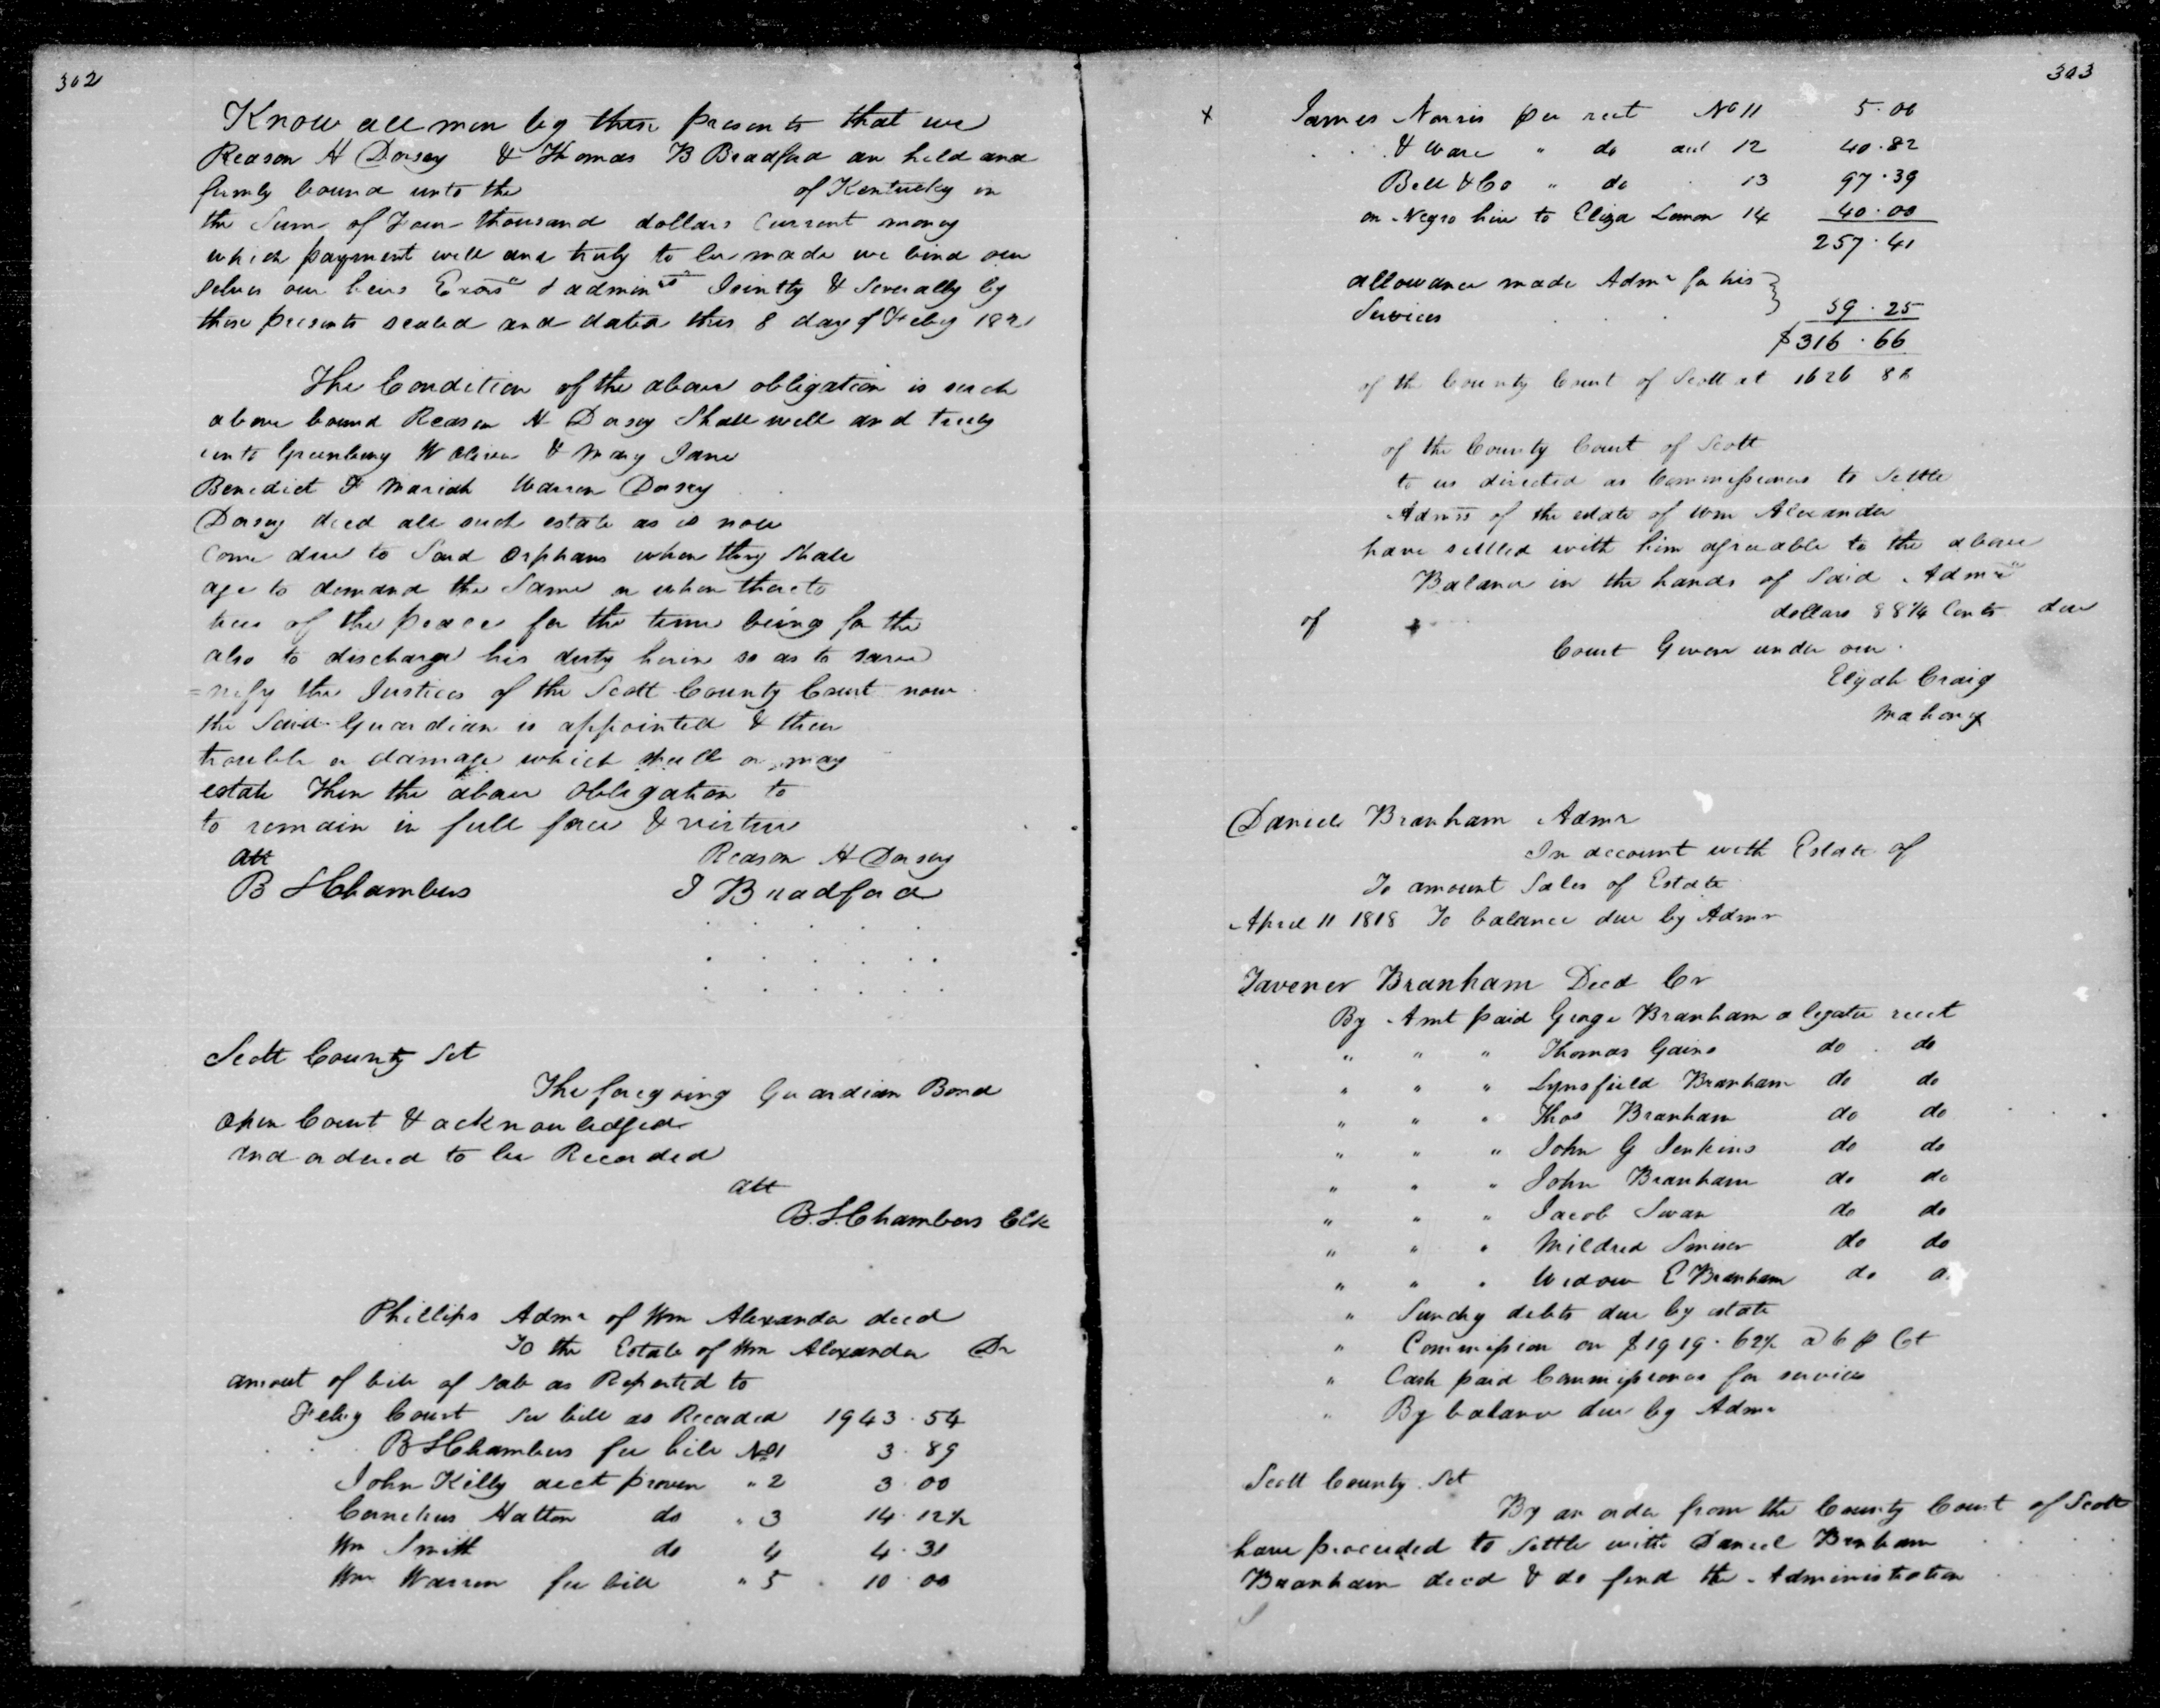 302
Know all men by these presents that we
Reason H Dorsey & Thomas B Bradford an held and
firmly bound unto the of Kentucky in
the Sum of Four thousand dollars Current money
which payment well and truly to be made we bind our
selves our heirs Exors & admins Jointly & Severally by
these presents sealed and dated this 8 day of Feby 1821
The Condition of the above obligation is such
above bound Reason H Dorsey Shall well and truly
unto Greenbury W Oliver & Mary Jane
Benedict F Mariah Warren Dorsey
Dorsey decd all such estate as is now
Come due to Said Orphans when they Shall
age to demand the Same or when thereto
tices of the peace for the time being for the
also to discharge his duty herein so as to save
=nify the Justices of the Scott County Court now
the Said Guardian is appointed & then
trouble or damage which shall or may
estate Then the above Obligation to
to remain in full force & virtue
att Reason H Dorsey
B S Chambers T Bradford
Scott County Sct
The foregoing Guardian Bond
Open Court & acknowledged
and ordered to be Recorded
att
B. S. Chambers Clk
Phillips Admr of Wm Alexander decd
To the Estate of Wm Alexander Dr
amount of bill of sale as Reported to
Feby Court See bill as Recorded 1943.54
B S Chambers fee bill No 1 3.89
John Killy acct proven " 2 3.00
Cornelius Hatton do " 3 14.12½
Wm Smith do 4 4.31
Wm Warren fee bill " 5 10.00
303
x James Norris per rect No 11 5.00
& Ware " do and 12 40.82
Bell & Co " do 13 97.39
on Negro hire to Eliza Lemon 14 40.00
257.41
allowance made Admr for his }
Services 59.25
$316.66
of the County Court of Scott at 1626 88
of the County Court of Scott
to us directed as Commissioners to Settle
Admrs of the estate of Wm Alexander
have settled with him agreeable to the above
Balance in the hands of Said Admr
of dollars 88¼ Cents due
Court Given under our
Elijah Craig
Mahony
Daniel Branham Admr
In account with Estate of
To amount Sales of Estate
April 11 1818 To balance due by Admr
Tavener Branham Decd Cr
By Amt paid George Branham a legatee recet
" " " Thomas Gains do do
" " " Lynsfield Branham do do
" " " Thos Branham do do
" " " John G Jenkins do do
" " " John Branham do do
" " " Jacob Swan do do
" " " Mildred Smiser do do
" " " Widow E Branham do
" Sundry debts due by estate
" Commission on $1919.62½ @ 6 p Ct
" Cash paid Commissioners for services
" By balance due by Admr
Scott County Sct
By an order from the County Court of Scott
have proceeded to Settle with Daniel Branham
Branham decd & do find the Administration